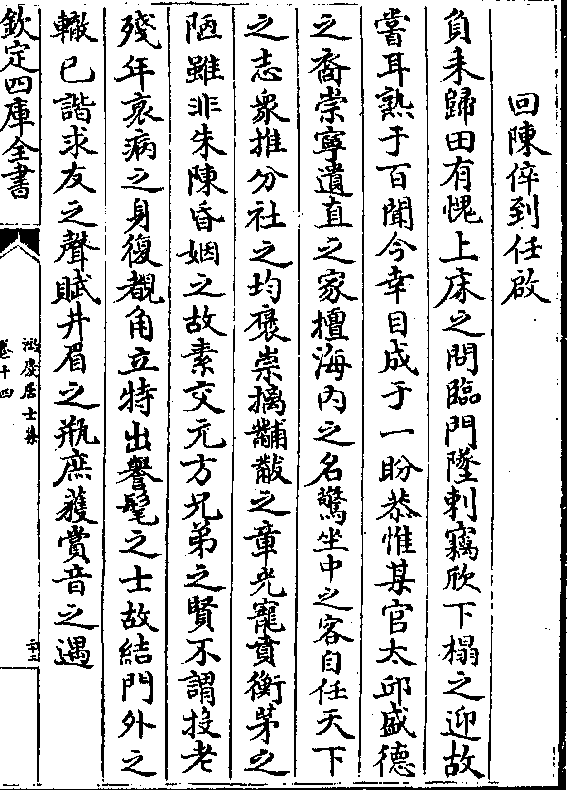 回陳倅到任啟
負耒歸田有愧上床之問臨門墜剌竊欣下榻之迎故
嘗耳熟于百聞今幸目成于一盼恭惟某官太邱盛德
之裔崇寧遺直之家擅海内之名驚坐中之客自任天下
之志衆推分社之均褒崇摛黼黻之章光寵賁衡茅之
陋雖非朱陳昏姻之故素交元方兄弟之賢不謂投老
殘年衰病之身復覩角立特出譽髦之士故結門外之
轍已諧求友之聲賦井眉之瓶庶獲賞音之遇
欽定四庫全書
鴻慶居士集
卷十四